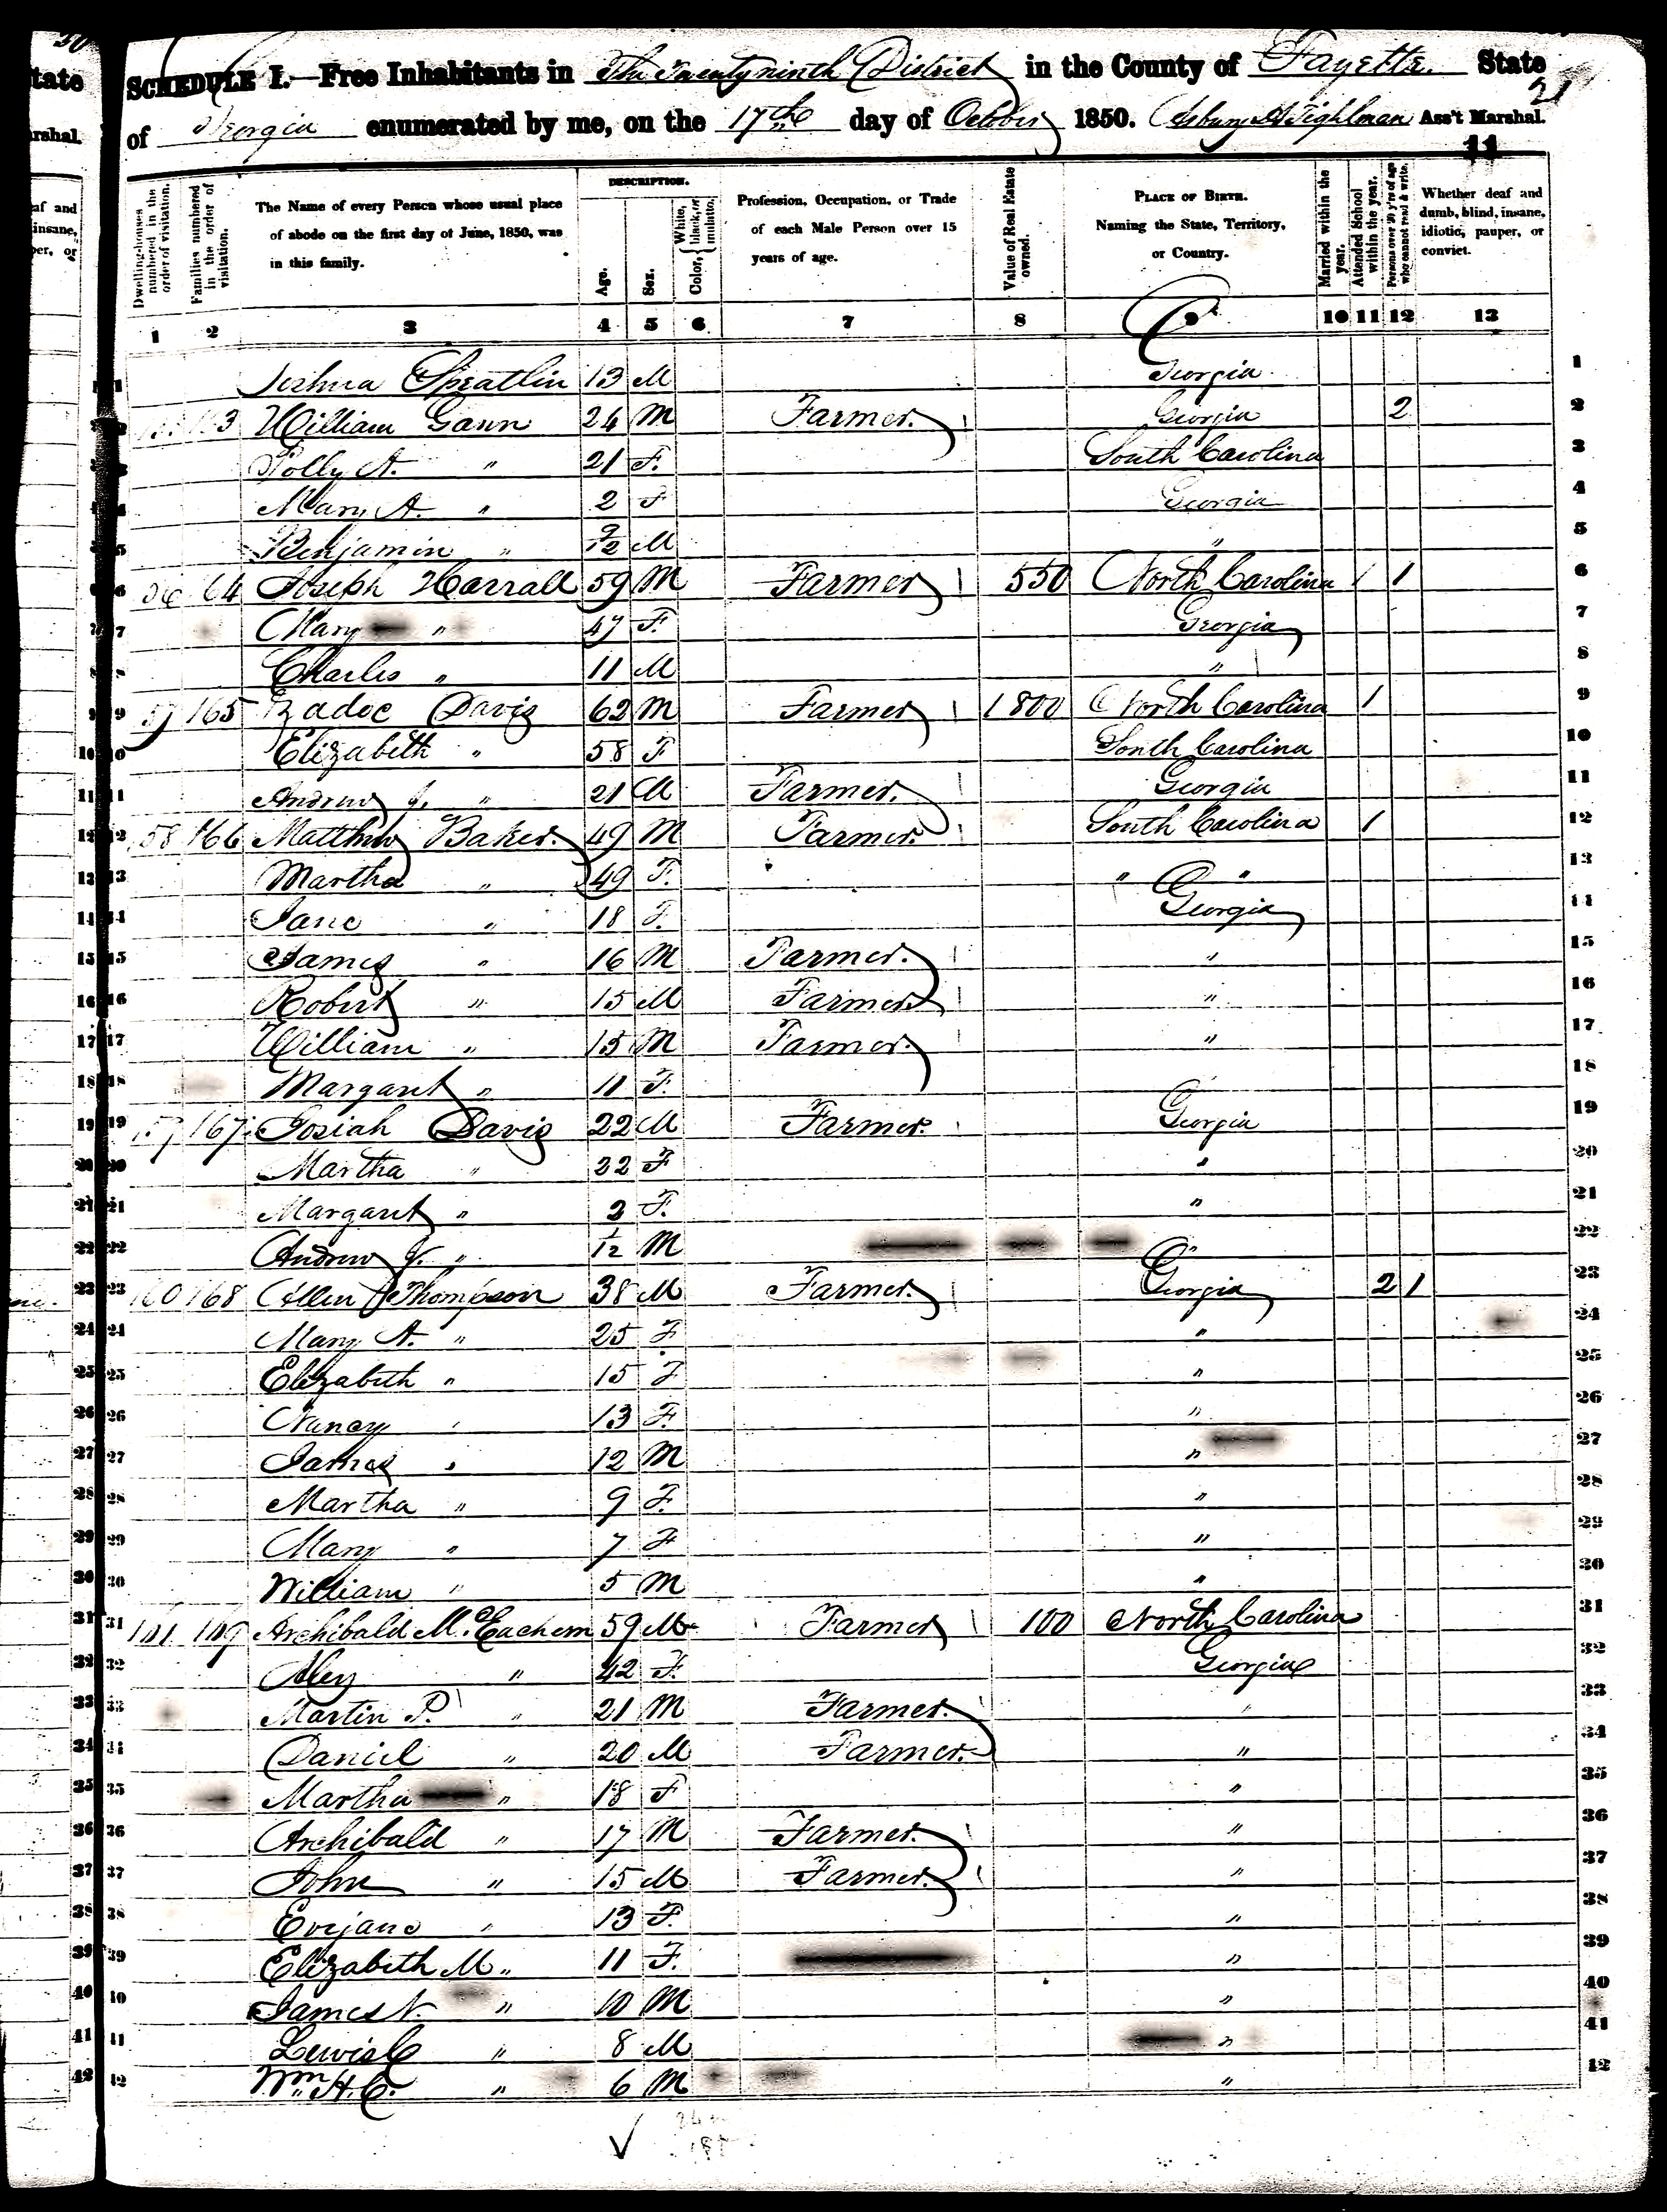 SCHEDULE I.—Free Inhabitants in The Twenty ninth District in the County of Fayette. State
of Georgia enumerated by me, on the 17th day of October 1850. Asbury H Tighlman Ass't Marshal.
21
11
Dwelling-houses numbered in the order of visitation.
Families numbered in the order of visitation.
The Name of every Person whose usual place of abode on the first day of June, 1850, was in this family.
DESCRIPTION.
Age.
Sex.
Color, White, black, or mulatto.
Profession, Occupation, or Trade of each Male Person over 15 years of age.
Value of Real Estate owned.
PLACE OF BIRTH.
Naming the State, Territory, or Country.
Married within the year.
Attended School within the year.
Persons over 20 y'rs of age who cannot read & write.
Whether deaf and dumb, blind, insane, idiotic, pauper, or convict.
1 2 3 4 5 6 7 8 9 10 11 12 13
1 Joshua Spratlin 13 M Georgia 1
2 William Gann 24 M Farmer. Georgia 2 2
3 Polly A. " 21 F. South Carolina 3
4 Mary A. " 2 F Georgia 4
5 Benjamin " 9/12 M " 5
6 64 Joseph Harrall 59 M Farmer 550 North Carolina 1 1 6
7 Mary " 47 F. Georgia 7
8 Charles " 11 M " 8
9 165 Zadoc Davis 62 M Farmer 1800 North Carolina 1 9
10 Elizabeth " 58 F South Carolina 10
11 Andrew J. " 21 M Farmer. Georgia 11
12 58 166 Matthew Baker. 49 M Farmer. South Carolina 1 12
13 Martha " 49 F. " " 13
14 Jane " 18 F. Georgia 14
15 James " 16 M Farmer. " 15
16 Robert " 15 M Farmer " 16
17 William " 15 M Farmer. " 17
18 Margaret " 11 F. 18
19 167 Josiah Davis 22 M Farmer. Georgia 19
20 Martha " 22 F " 20
21 Margaret " 2 F. " 21
22 Andrew J. " 1/12 M " 22
23 160 168 Allen Thompson 38 M Farmer. Georgia 2 1 23
24 Mary A. " 25 F " 24
25 Elizabeth " 15 F " 25
26 Nancy " 13 F. " 26
27 James " 12 M " 27
28 Martha " 9 F. " 28
29 Mary " 7 F " 29
30 William " 5 M " 30
31 161 169 Archibald McEachern 59 M Farmer 100 North Carolina 31
32 Aley " 42 F. Georgia 32
33 Martin P. " 21 M Farmer. " 33
34 Daniel " 20 M Farmer. " 34
35 Martha " 18 F " 35
36 Archibald " 17 M Farmer. " 36
37 John " 15 M Farmer. " 37
38 Evejane " 13 F. " 38
39 Elizabeth M " 11 F. " 39
40 James N. " 10 M " 40
41 Lewis C " 8 M " 41
42 Wm. H. C. " 6 M " 42